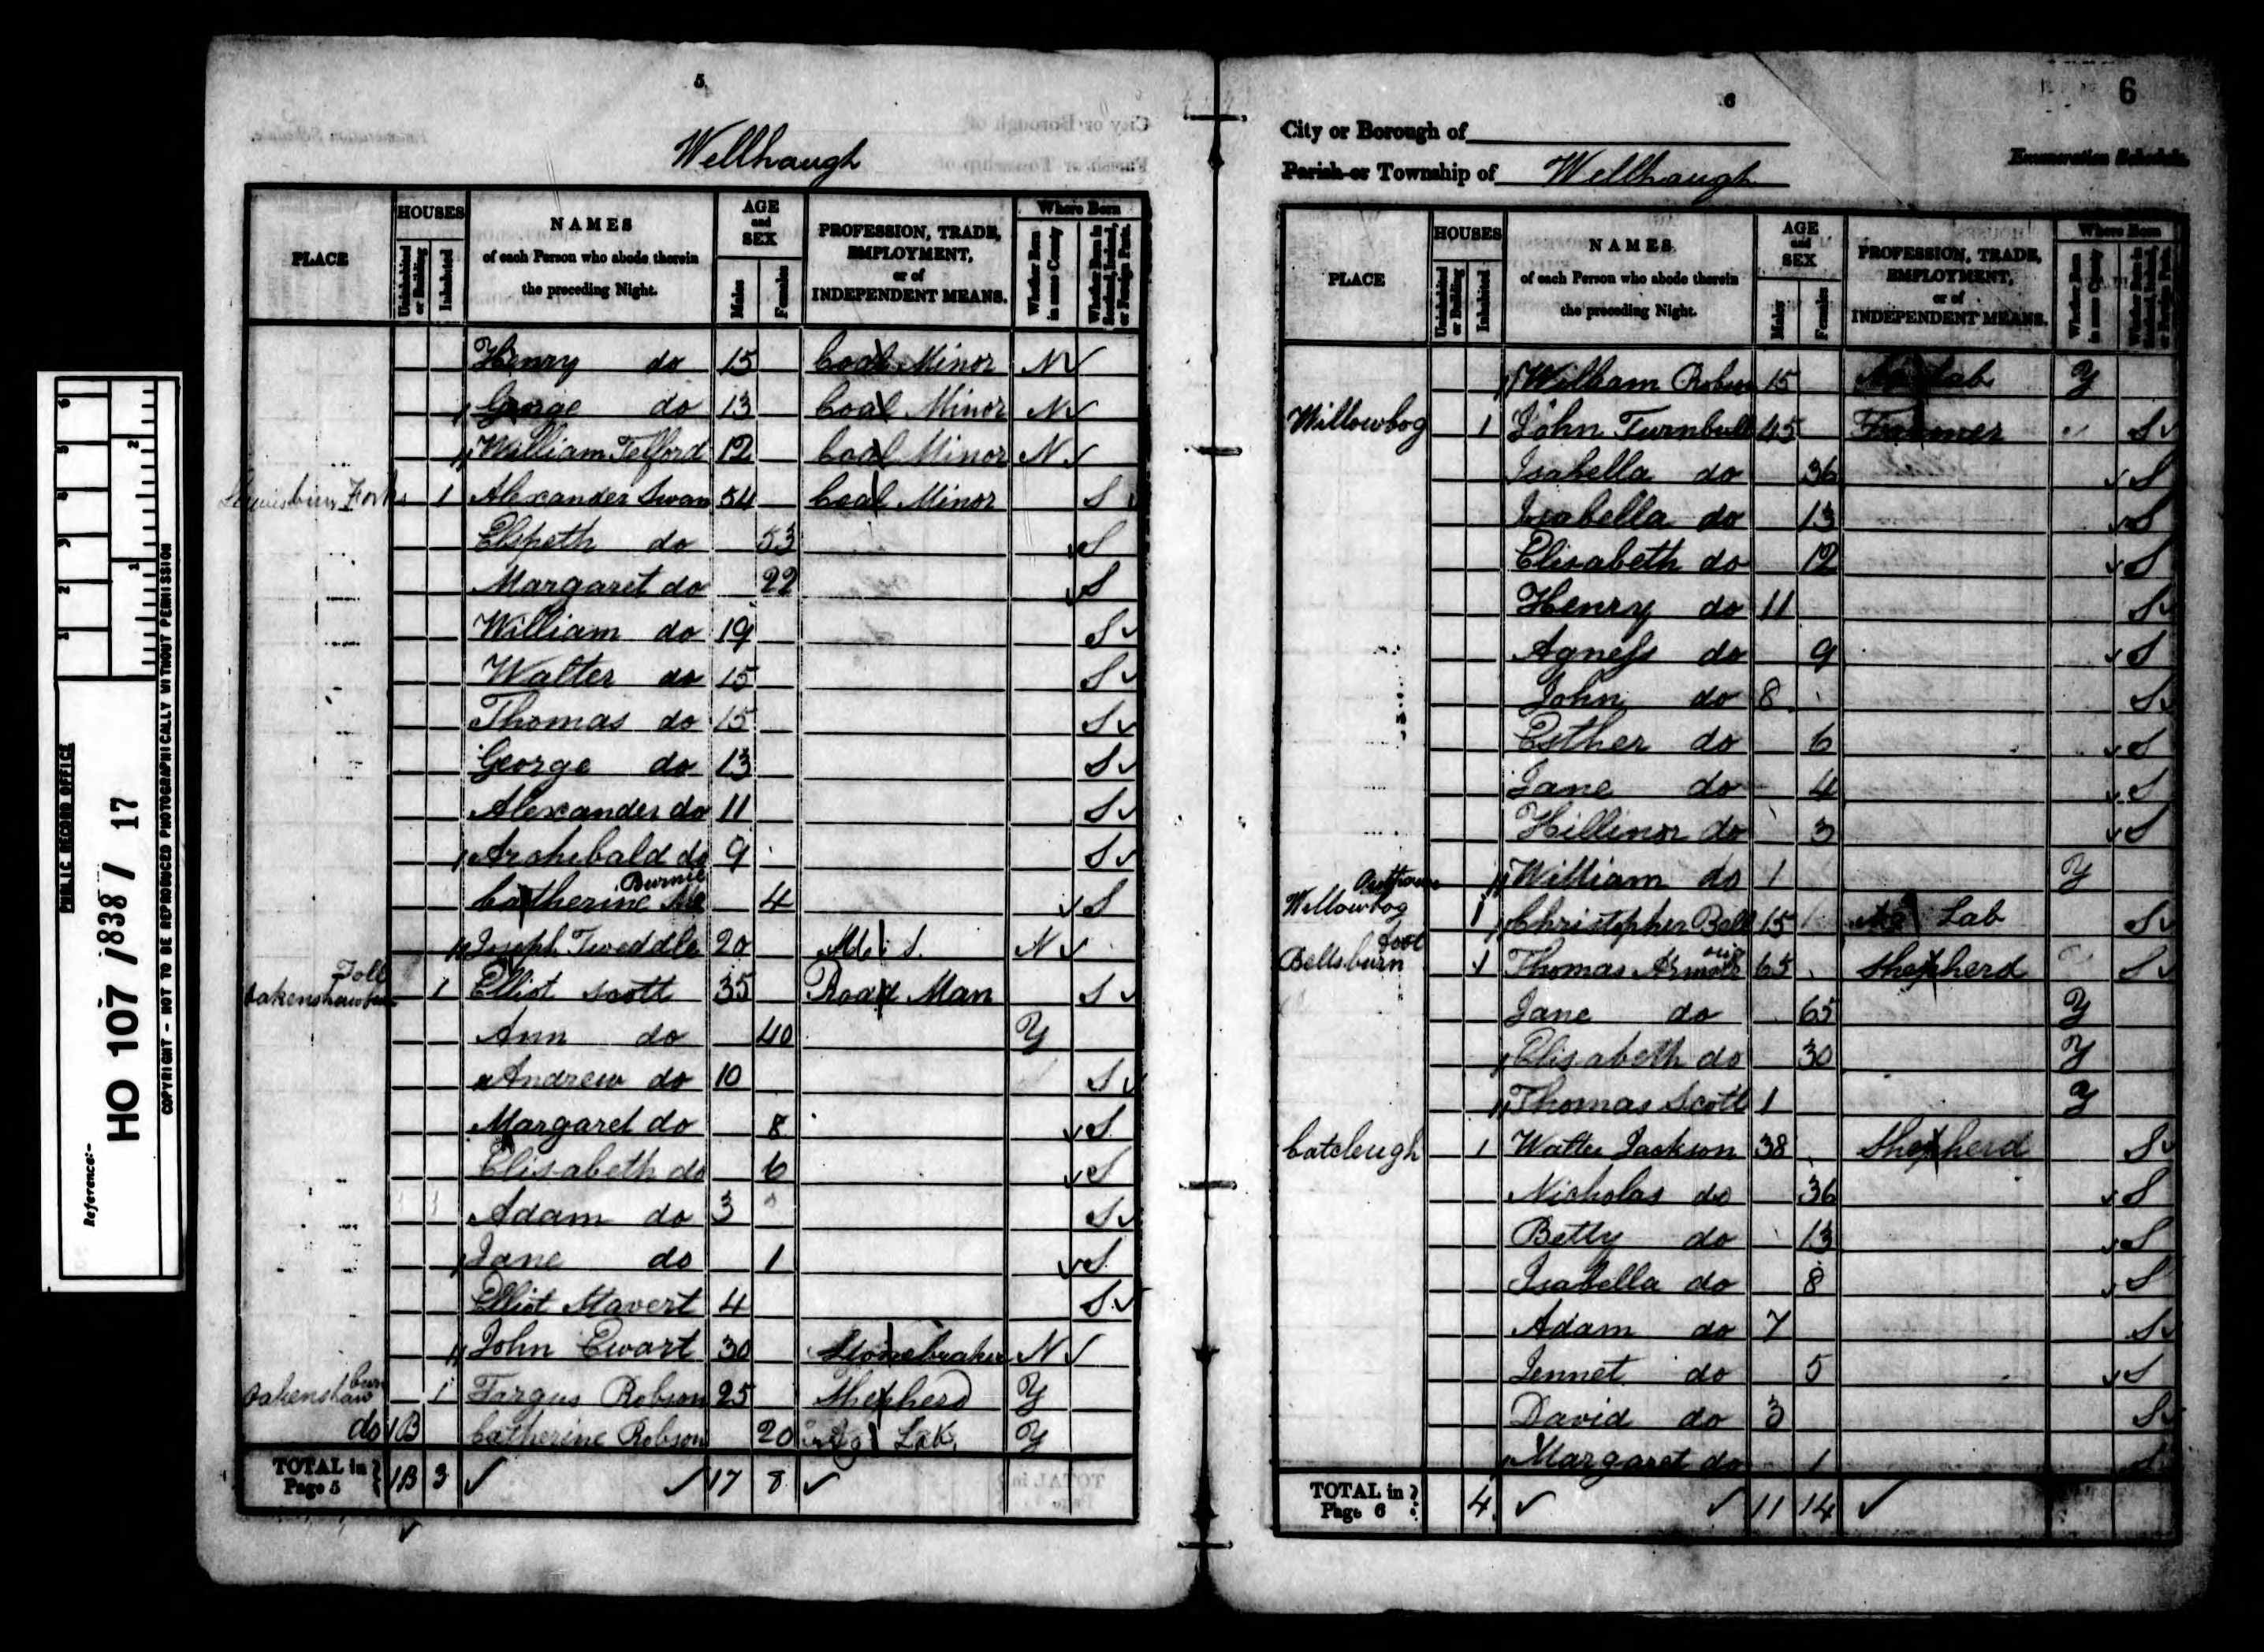 PUBLIC RECORD OFFICE
Reference:-
HO 107 / 838 / 17
COPYRIGHT - NOT TO BE REPRODUCED PHOTOGRAPHICALLY WITHOUT PERMISSION
5
Wellhaugh
PLACE
HOUSES
Uninhabited or Building
Inhabited
NAMES
of each Person who abode therein
the preceding Night.
AGE
and
SEX
Males
Females
PROFESSION, TRADE,
EMPLOYMENT,
or of
INDEPENDENT MEANS.
Where Born
Whether Born in same County
Whether Born in Scotland, Ireland, or Foreign Parts.
Henry do 15 Coal Minor N
George do 13 Coal Minor N
William Telford 12 Coal Minor N
1 Alexander Swan 54 Coal Minor S
Elspeth do 53 S
Margaret do 22 S
William do 19 S
Walter do 15 S
Thomas do 15 S
George do 13 S
Alexander do 11 S
Archibald do 9 S
Catherine Mc Burnie 4 S
Joseph Tweddle 20 M. S. N
Oakenshawburn Toll 1 Elliot Scott 35 Road Man S
Ann do 40 Y
Andrew do 10 S
Margaret do 8 S
Elisabeth do 6 S
Adam do 3 S
Jane do 1 S
Elliot Mavert 4 S
John Ewart 30 Stonebraker N
Oakenshaw burn 1 Fargus Robson 25 Shepherd Y
do 1B Catherine Robson 20 Ag Lab Y
TOTAL in Page 5 1B 3 17 8
6
6
City or Borough of
Parish or Township of Wellhaugh
Enumeration Schedule.
PLACE
HOUSES
Uninhabited or Building
Inhabited
NAMES
of each Person who abode therein
the preceding Night.
AGE
and
SEX
Males
Females
PROFESSION, TRADE,
EMPLOYMENT,
or of
INDEPENDENT MEANS.
Where Born
Whether Born in same County
Whether Born in Scotland, Ireland, or Foreign Parts.
William Robson 15 Ag Lab Y
Willowbog 1 John Turnbull 45 Farmer S
Isabella do 36 S
Isabella do 13 S
Elisabeth do 12 S
Henry do 11 S
Agness do 9 S
John do 8 S
Esther do 6 S
Jane do 4 S
Hillinor do 3 S
William do 1 Y
Willowbog 1 Christopher Bell 15 Ag Lab S
Bellsburn foot 1 Thomas 65 Shepherd S
Jane do 65 Y
Elisabeth do 30 Y
Thomas Scott 1 Y
Catcleugh 1 Walter Jackson 38 Shepherd S
Nicholas do 36 S
Betty do 13 S
Isabella do 8 S
Adam do 7 S
Jennet do 5 S
David do 3 S
Margaret do 1 S
TOTAL in Page 6 4 11 14